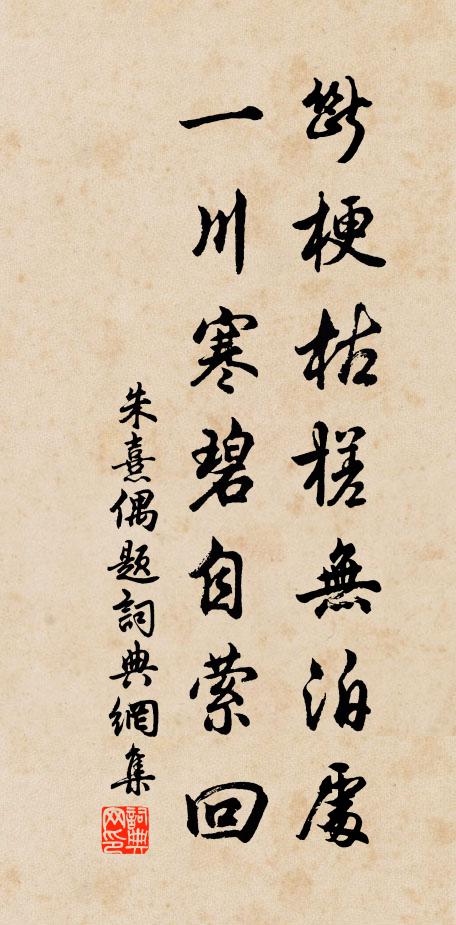 斷梗枯槎無泊處
一川寒碧自萦回
朱熹偶题詞典網集
詞典网印